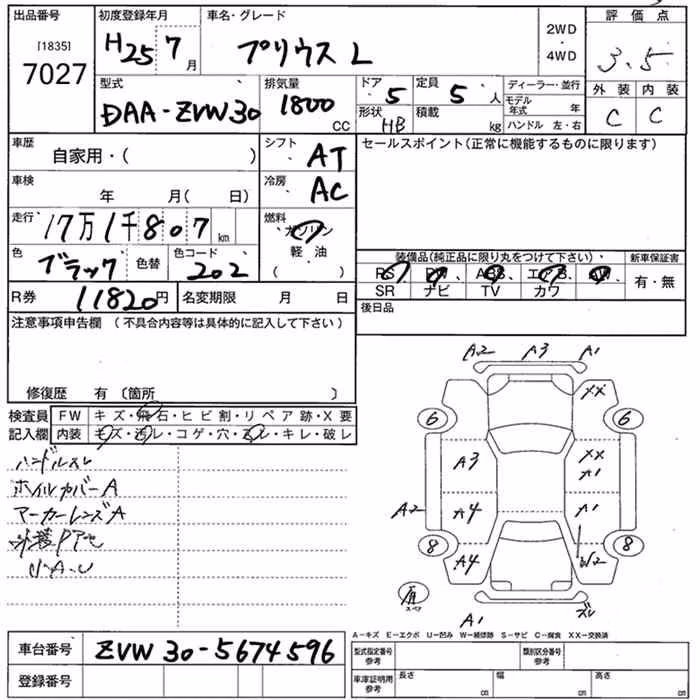 出品番号 初度登録年月 車名・グレード 評価点
[1835] 7027 H25 7月 プリウス L 2WD・4WD 3.5
型式 排気量 ドア 5 定員 5人 ディーラー・並行 外装 内装
DAA-ZVW30 1800CC 形状 HB 積載 kg モデル年式 年 C C
ハンドル 左・右
車歴 自家用・( ) シフト AT セールスポイント(正常に機能するものに限ります)
車検 年 月( 日) 冷房 AC
走行 17万1千807km 燃料 ガソリン
色 ブラック 色替 色コード 202 軽・油 ( )
装備品(純正品に限り丸をつけて下さい) 新車保証書
PS PW ABS エアB AW 有・無
SR ナビ TV カワ
R券 11820円 名変期限 月 日 後日品
注意事項申告欄 (不具合内容等は具体的に記入して下さい)
修復歴 有 〔箇所 〕
検査員 FW キズ・飛石・ヒビ割・リペア跡・X要
記入欄 内装 キズ・汚レ・コゲ穴・ズレ・キレ・破レ
ハンドルスレ
ホイルカバーA
マーカーレンズA
小A・U
A2 A3 A1
XX
6 6
A3 XX A1
A2 A4 A1
8 A4 W2 8
スペア
A1 ズレ
A-キズ E-エクボ U-凹み W-補修跡 S-サビ C-腐食 XX-交換済
車台番号 ZVW30-5674596 型式指定番号 参考 類別区分番号 参考
登録番号 車庫証明用 参考 長さ cm 幅 cm 高さ cm